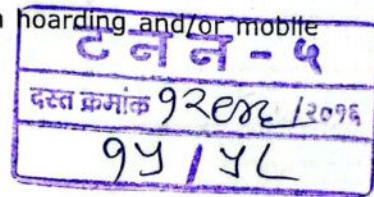 hoarding and/or mobile
ट न न - ५
दस्त क्रमांक १२९४६ /२०१६
१५ / ५८